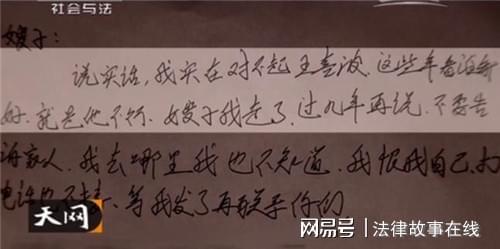 社会与法
嫂子：
说实话，我实在对不起王喜波．这些年看没
好．就是他不行．嫂子我走了．过几年再说．不要告
诉家人．我去哪里我也不知道．我恨我自己．打
电话也不接．等我发了再联系你们
天网
网易号 | 法律故事在线